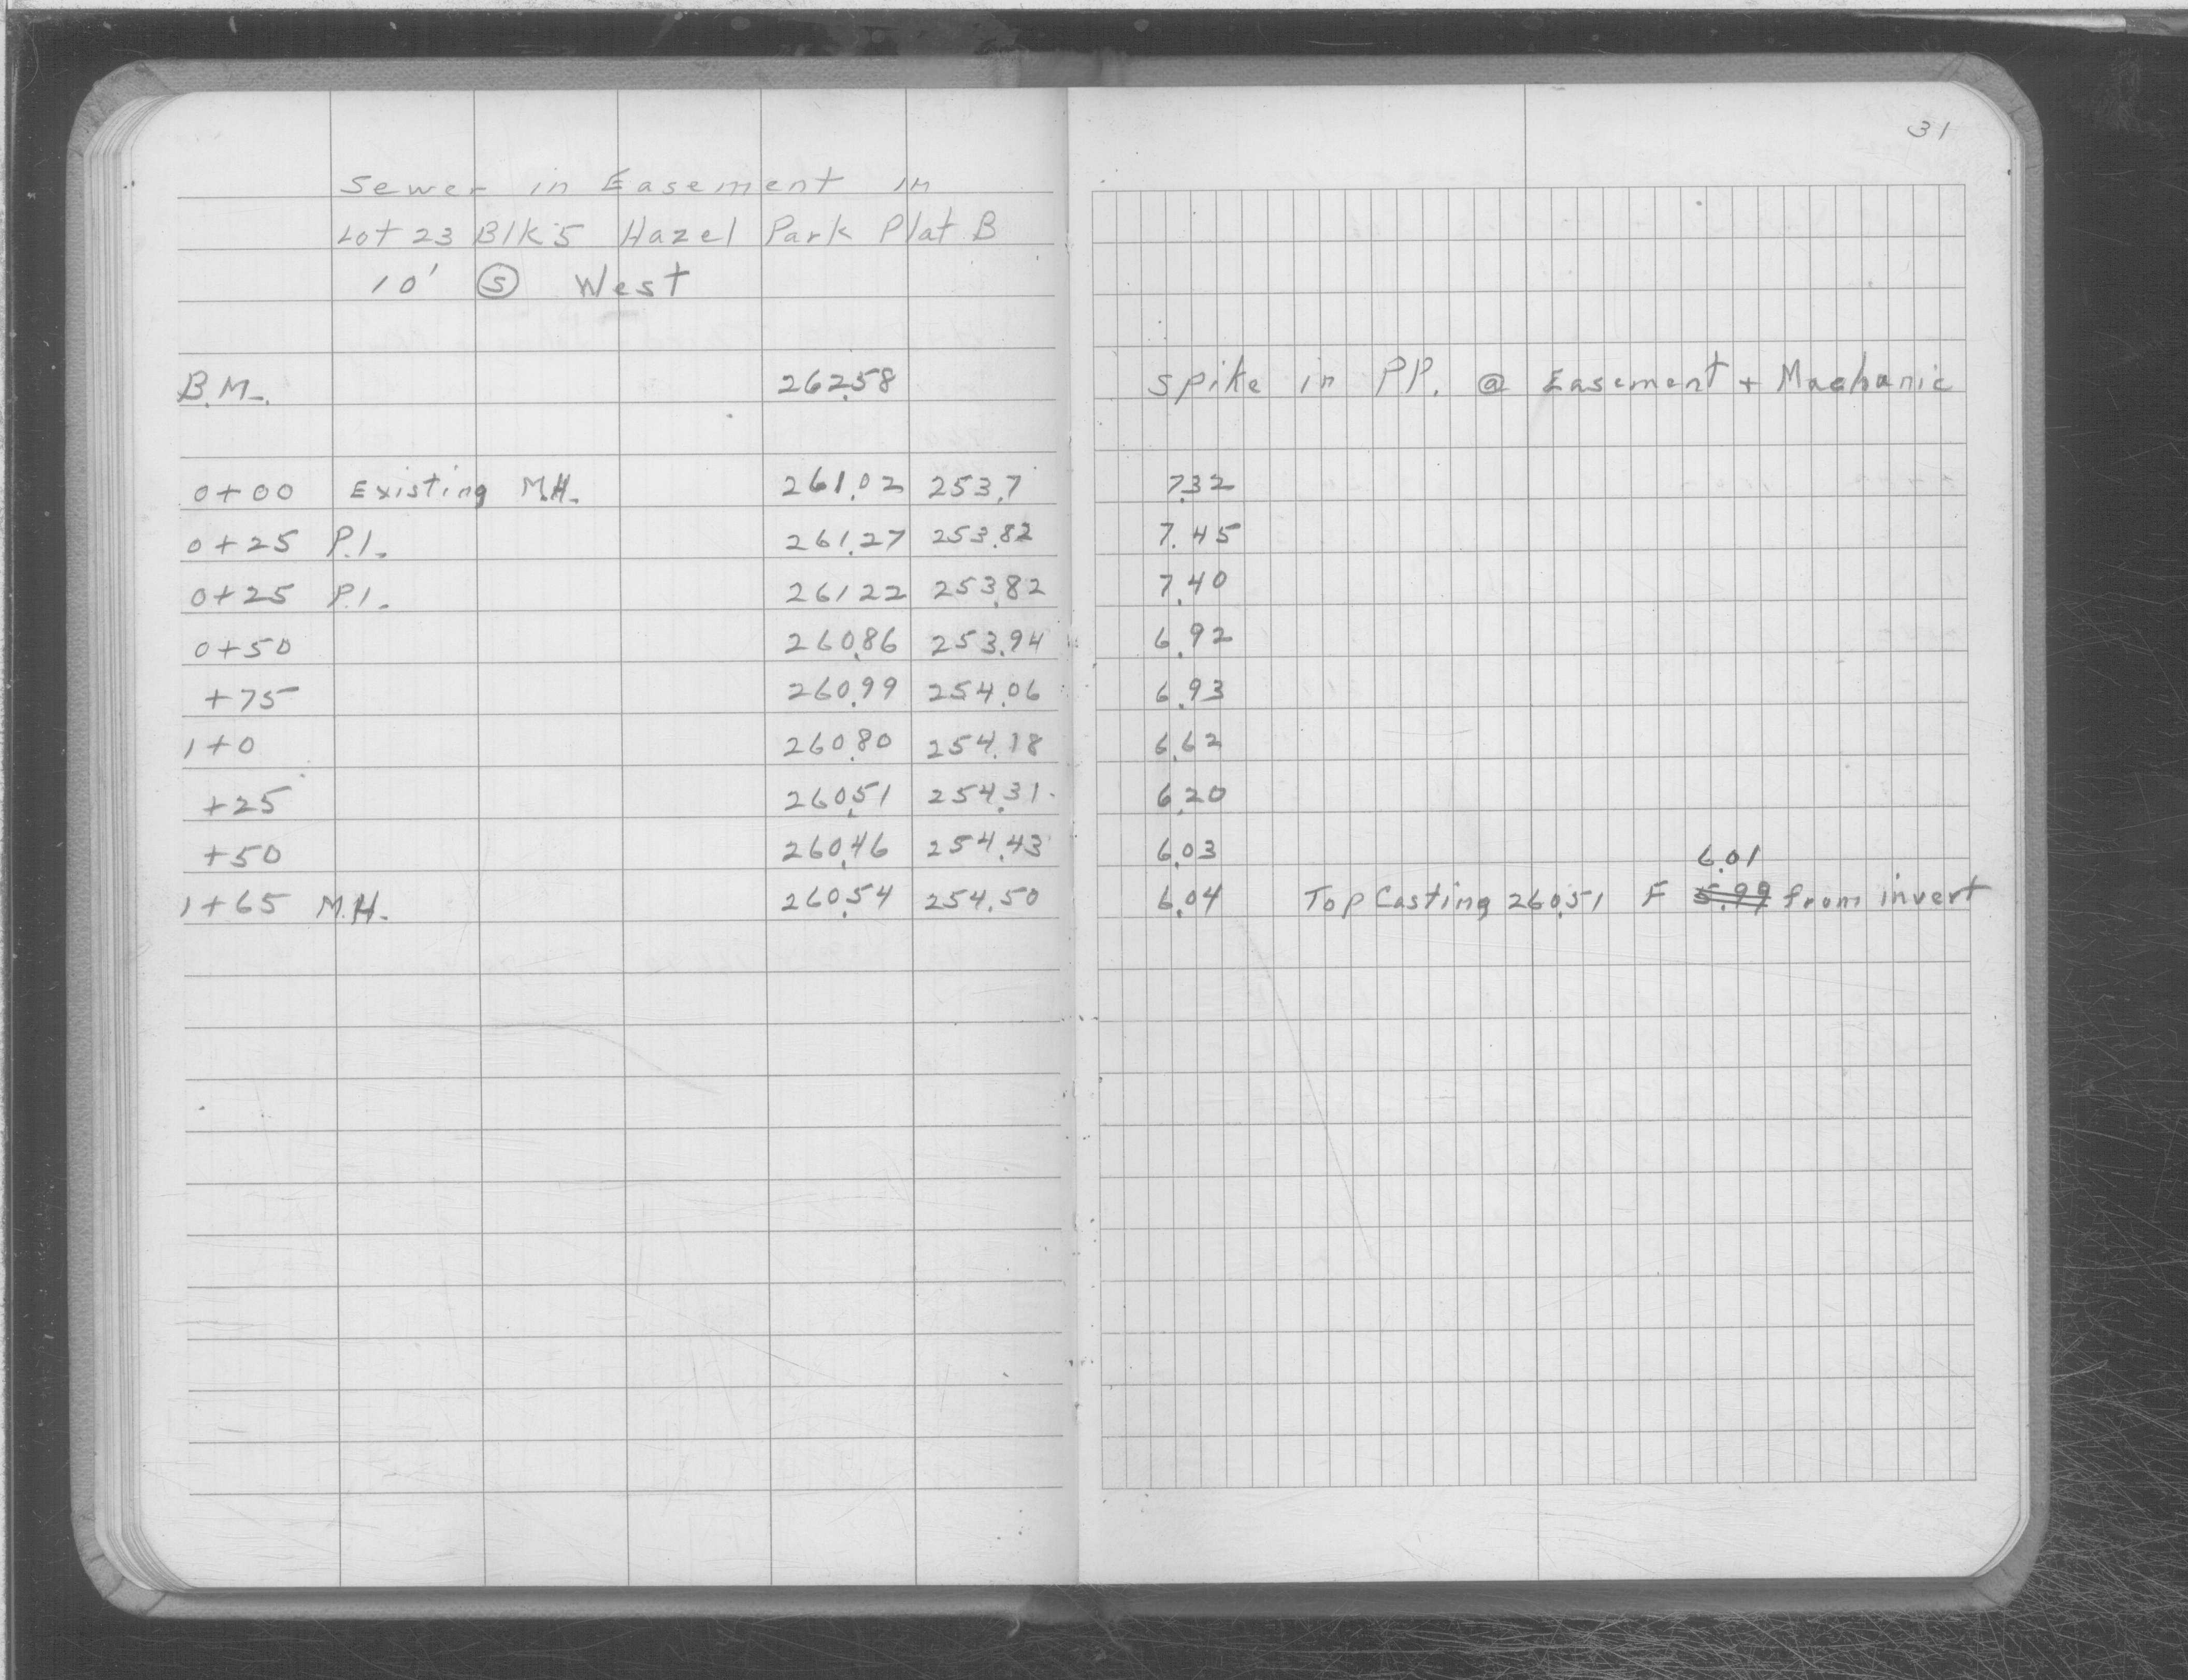 31
Sewer in Easement in
Lot 23 Blk 5 Hazel Park Plat B
10' Ⓢ West
B.M. 262.58 Spike in PP. @ Easement + Mechanic
0+00 Existing M.H. 261.02 253.7 7.32
0+25 P.I. 261.27 253.82 7.45
0+25 P.I. 261.22 253.82 7.40
0+50 260.86 253.94 6.92
+75 260.99 254.06 6.93
1+0 260.80 254.18 6.62
+25 260.51 254.31 6.20
+50 260.46 254.43 6.03
6.01
1+65 M.H. 260.54 254.50 6.04 Top Casting 260.51 F 5.99 from invert